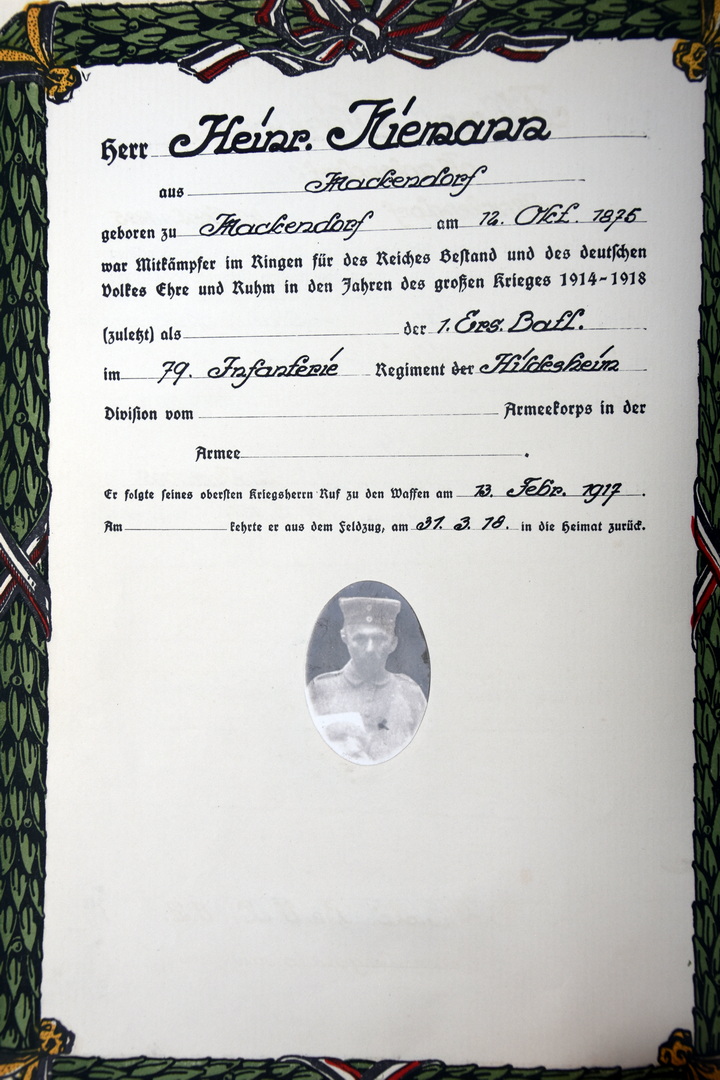 Herr Heinr. Niemann
aus Mackendorf
geboren zu Mackendorf am 12. Okt. 1876
war Mitkämpfer im Ringen für des Reiches Bestand und des deutschen
Volkes Ehre und Ruhm in den Jahren des großen Krieges 1914-1918
(zuletzt) als der 1. Ers. Batl.
im 79. Infanterie Regiment der Hildesheim
Division vom Armeekorps in der
Armee .
Er folgte seines obersten Kriegsherrn Ruf zu den Waffen am 13. Febr. 1917 .
Am kehrte er aus dem Feldzug, am 31. 3. 18. in die Heimat zurück.